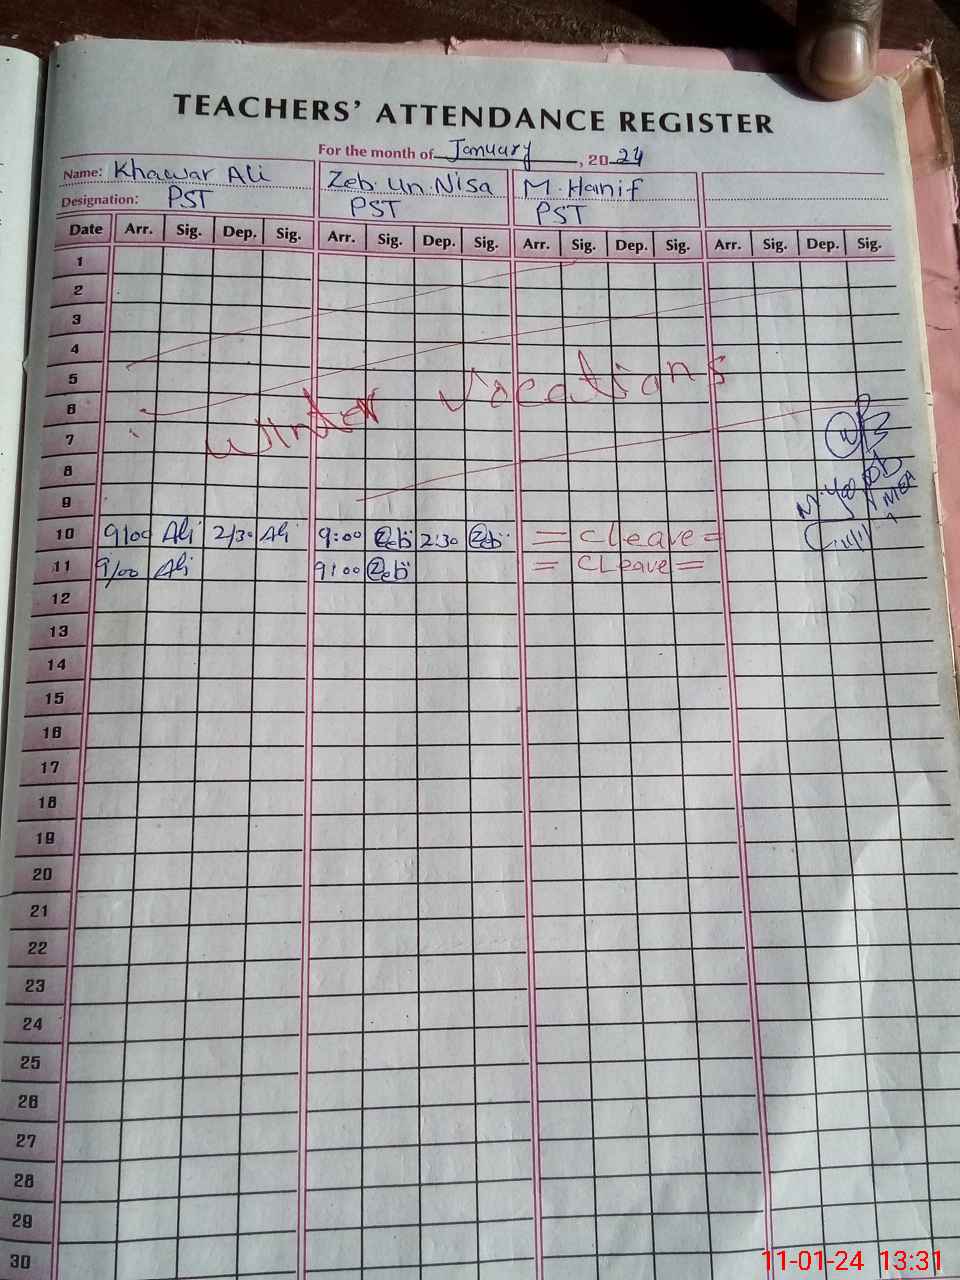 TEACHERS' ATTENDANCE REGISTER
For the month of January, 2024
Name: Khawar Ali Zeb. Un. Nisa M. Hanif
Designation: PST PST PST
Date Arr. Sig. Dep. Sig. Arr. Sig. Dep. Sig. Arr. Sig. Dep. Sig. Arr. Sig. Dep. Sig.
1
2
3
4
5
6
7
8
9
Winter Vacations
10 9/00 Ali 2/30 Ali 9:00 Zeb 2:30 Zeb = CLeave =
11 9/00 Ali 9:00 Zeb = CLeave =
12
13
14
15
16
17
18
19
20
21
22
23
24
25
26
27
28
29
30
MEA
11-01-24 13:31